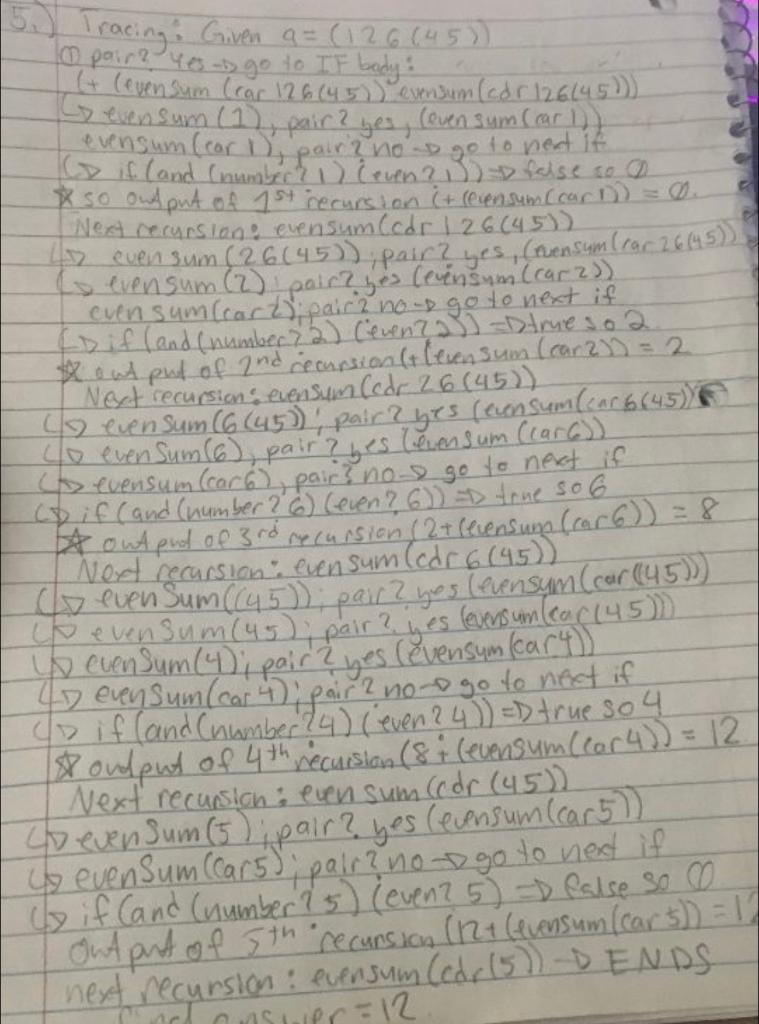 5.) Tracing: Given a = (126(45))
① pair? yes → go to IF body:
(+ (evensum (car 126(45)) evensum(cdr 126(45)))
↳ evensum (1), pair? yes, (evensum(car 1))
evensum(car 1), pair? no → go to next if
↳ if (and (number? 1) (even? 1)) ⇒ false so 0
☆ so output of 1st recursion (+ (evensum(car 1)) = 0.
Next recursion: evensum(cdr 126(45))
↳ evensum (26(45)), pair? yes, (evensum(car 26(45))
↳ evensum (2); pair? yes (evensum(car 2))
evensum(car 2); pair? no → go to next if
↳ if (and (number? 2) (even? 2)) ⇒ true so 2
☆ output of 2nd recursion (+ (evensum (car 2)) = 2
Next recursion: evensum(cdr 26(45))
↳ evensum (6(45)); pair? yes (evensum(car 6(45))
↳ evenSum(6), pair? yes (evensum (car 6))
↳ evensum(car 6), pair? no → go to next if
↳ if (and (number? 6) (even? 6)) ⇒ true so 6
☆ output of 3rd recursion (2+(evensum(car 6)) = 8
Next recursion: evensum(cdr 6(45))
↳ evenSum((45)); pair? yes (evensum(car((45)))
↳ evenSum(45); pair? yes (evensum(car(45)))
↳ evenSum(4); pair? yes (evensum(car 4))
↳ evenSum(car 4); pair? no → go to next if
↳ if (and (number? 4) (even? 4)) ⇒ true so 4
☆ output of 4th recursion (8+(evensum(car 4)) = 12
Next recursion: evensum(cdr (45))
↳ evenSum(5); pair? yes (evensum(car 5))
↳ evenSum(car 5); pair? no → go to next if
↳ if (and (number? 5) (even? 5) ⇒ false so 0
output of 5th recursion (12+(evensum(car 5)) = 12
next recursion: evensum(cdr(5)) → ENDS
final answer = 12